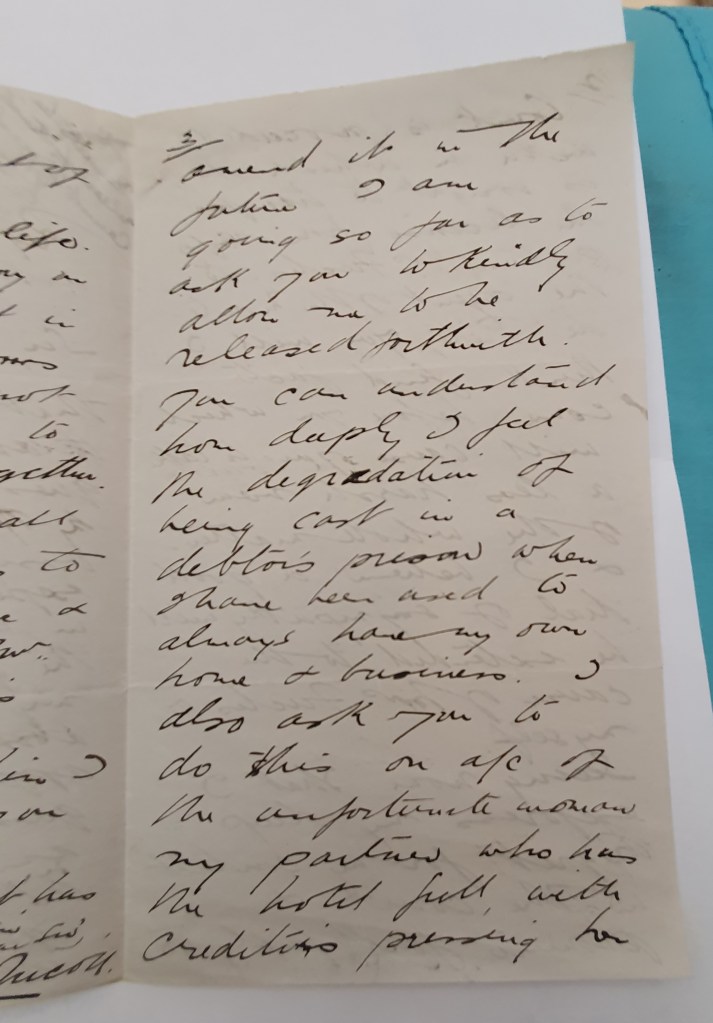 t of
life.
in
not
to
gether.
all
to
&
has
Sir,
3/
amend it in the
future I am
going so far as to
ask you to kindly
allow me to be
released forthwith.
You can understand
how deeply I feel
the degradation of
being cast in a
debtor's prison when
I have been used to
always have my own
home & business. I
also ask you to
do this on a/c of
the unfortunate woman
my partner who has
the hotel full with
creditors pressing her